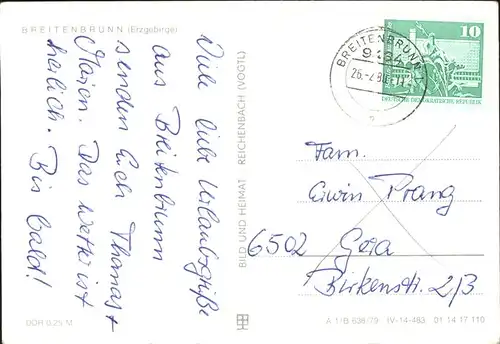 BREITENBRUNN (Erzgebirge)
Viele liebe Urlaubsgrüße
aus Breitenbrunn
senden Euch Thomas +
Marion. Das Wetter ist
herrlich. Bis bald!
DDR 0,25 M
BILD UND HEIMAT REICHENBACH (VOGTL)
BREITENBRUNN
9434
10
DEUTSCHE DEMOKRATISCHE REPUBLIK
Fam.
Erwin Prang
6502 Gera
Birkenstr. 2/3
A 1/B 636/79 IV-14-483 01 14 17 110